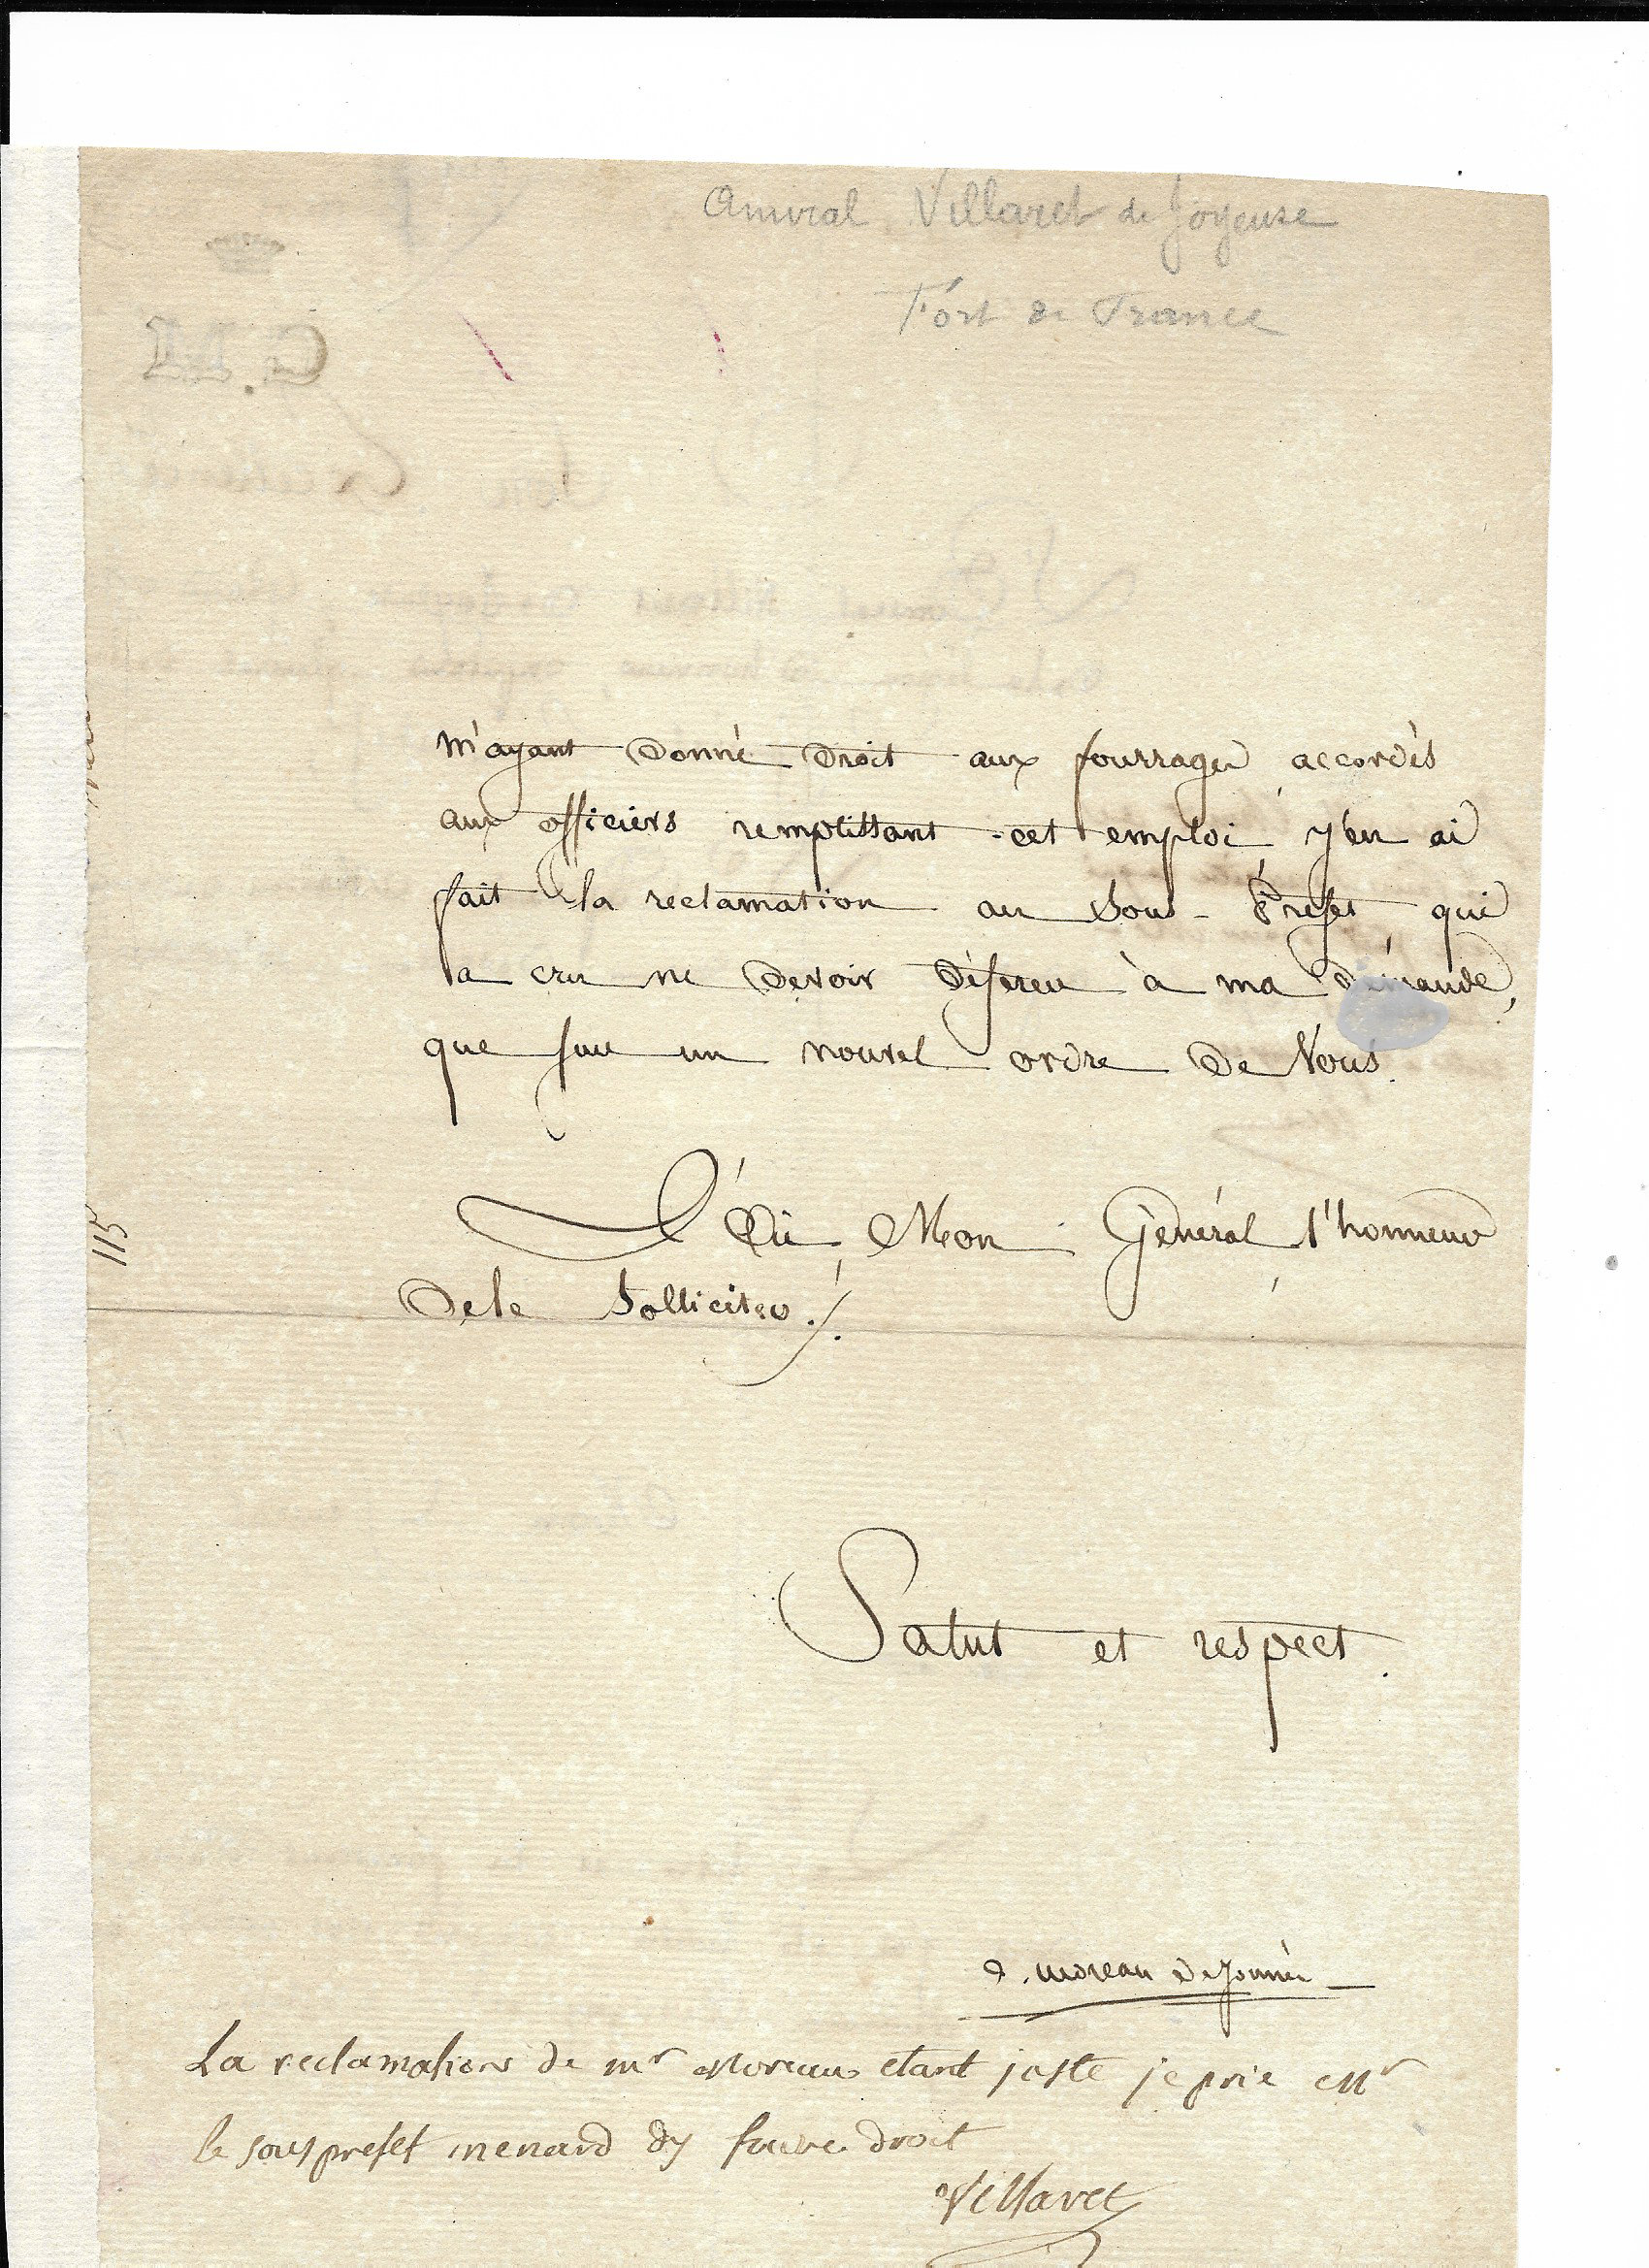 Amiral Villaret de Joyeuse
Fort de France
m'ayant donné droit aux fourrages accordés
aux officiers remplissant cet emploi j'en ai
fait la reclamation au Sous-Préfet qui
a cru ne devoir déferer à ma démande,
que sur un nouvel ordre de Vous.
J'ai Mon Général l'honneur
de le Solliciter ./.
Salut et respect.
a. moreau de jonnès
La reclamation de mr Moreau etant juste je prie Mr
le sousprefet menard dy faire droit
Villaret
115